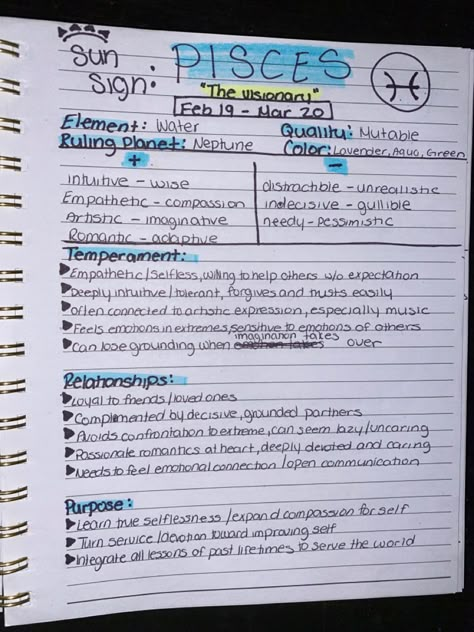 Sun
Sign: PISCES
"The Visionary"
Feb 19 - Mar 20
Element: Water Quality: Mutable
Ruling Planet: Neptune Color: Lavender, Aqua, Green
+ -
intuitive - wise distractible - unrealistic
Empathetic - compassion indecisive - gullible
Artistic - imaginative needy - Pessimistic
Romantic - adaptive
Temperament:
▶Empathetic/selfless, willing to help others w/o expectation
▶Deeply intuitive/tolerant, forgives and trusts easily
▶often connected to artistic expression, especially music
▶Feels emotions in extremes, sensitive to emotions of others
▶Can lose grounding when imagination takes over
Relationships:
▶Loyal to friends/loved ones
▶Complimented by decisive, grounded partners
▶Avoids confrontation to extreme, can seem lazy/uncaring
▶Passionate romantics at heart, deeply devoted and caring
▶Needs to feel emotional connection/open communication
Purpose:
▶Learn true selflessness/expand compassion for self
▶Turn service/devotion toward improving self
▶Integrate all lessons of past lifetimes to serve the world